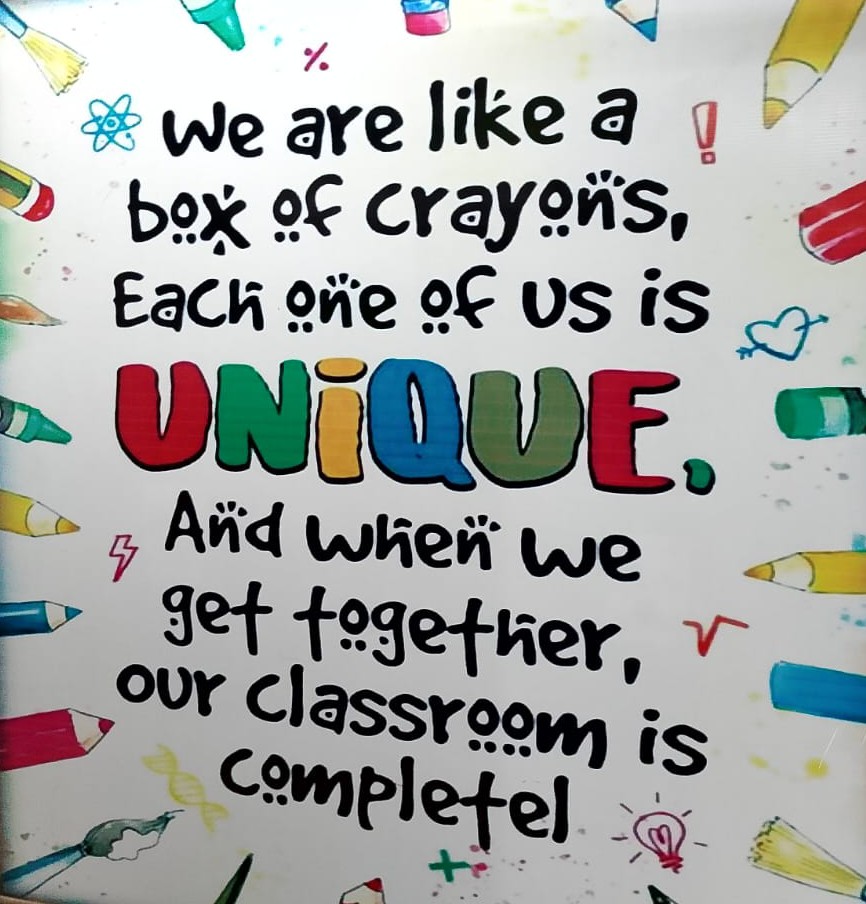 We are like a
box of crayons,
Each one of us is
UNiQUE.
And when we
get together,
our classroom is
completel